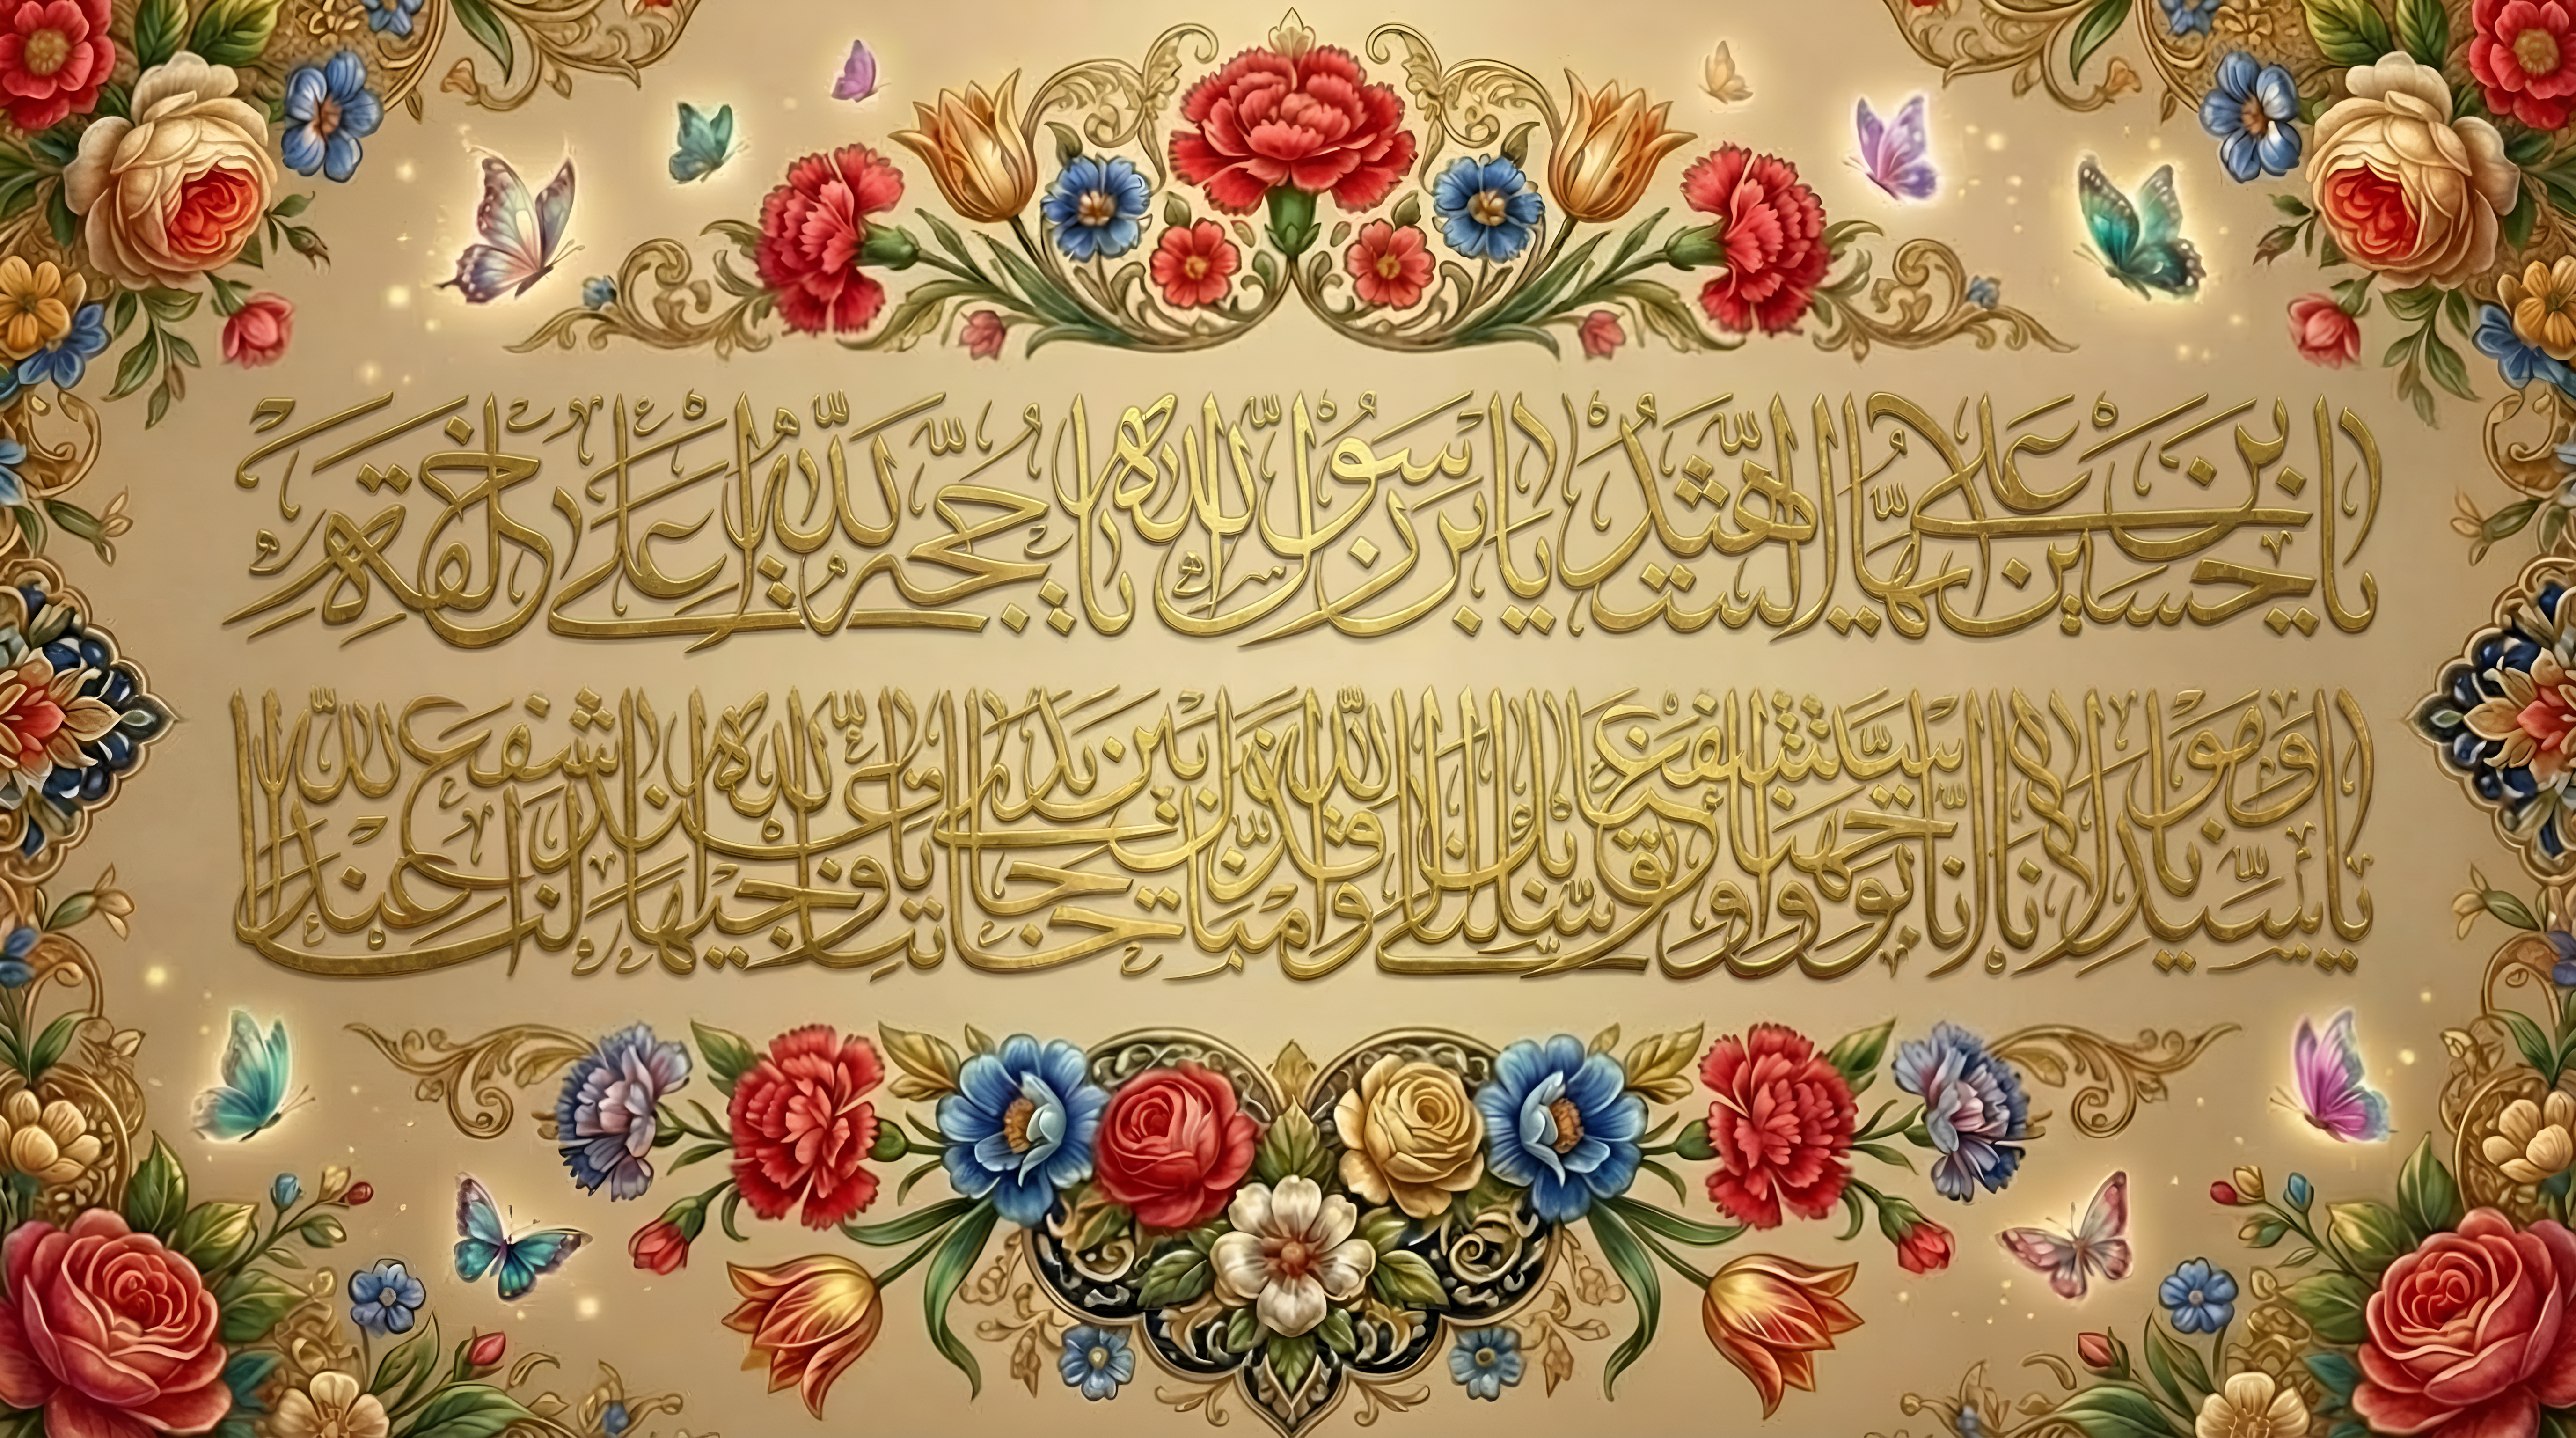 يا حسين بن علي ايها الشهيد يا بن رسول الله يا حجة الله على خلقه
يا سيدنا ومولانا انا توجهنا واستشفعنا وتوسلنا بك الى الله وقدمناك بين يدي حاجاتنا يا وجيها عند الله اشفع لنا عند الله